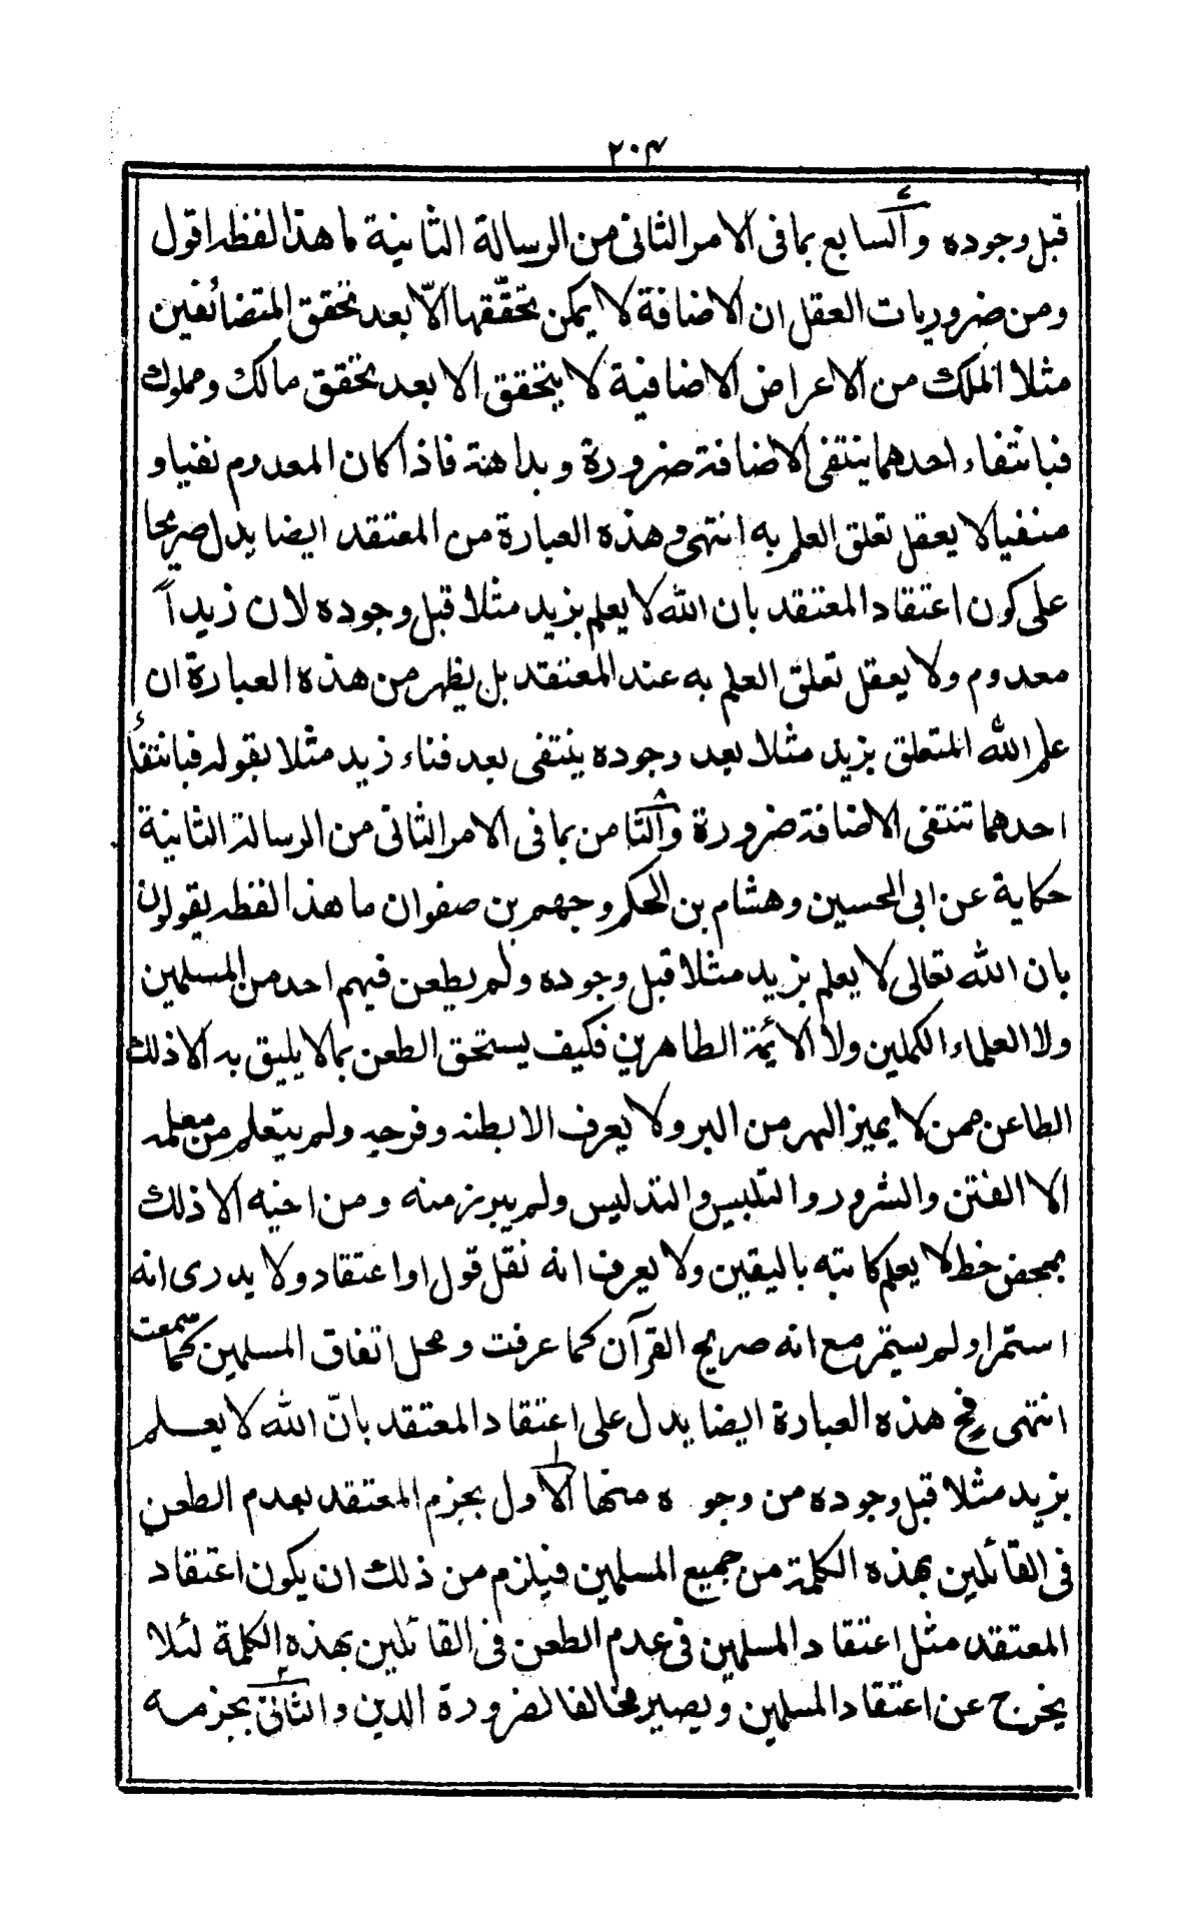 ٢٠٣
قبل وجوده والسابع بما فى الامر الثانى من الرسالة الثانية ما هذا لفظه اقول
ومن ضروريات العقل ان الاضافة لا يمكن تحقّقها الّا بعد تحقق المتضائفين
مثلا الملك من الاعراض الاضافية لا يتحقق الا بعد تحقق مالك ومملوك
فبانتفاء احدهما ينتفى الاضافة ضرورة وبداهة فاذا كان المعدوم نفيا و
منفيا لا يعقل تعلق العلم به انتهى وهذه العبارة من المعتقد ايضا يدل صريحا
على كون اعتقاد المعتقد بان الله لا يعلم بزيد مثلا قبل وجوده لان زيداً
معدوم ولا يعقل تعلق العلم به عند المعتقد بل يظهر من هذه العبارة ان
علم الله المتعلق بزيد مثلا بعد وجوده ينتفى بعد فناء زيد مثلا بقوله فبانتفاء
احدهما تنتفى الاضافة ضرورة والثامن بما فى الامر الثانى من الرسالة الثانية
حكاية عن ابى الحسين وهشام بن الحكم وجهم بن صفوان ما هذا لفظه يقولون
بان الله تعالى لا يعلم بزيد مثلا قبل وجوده ولم يطعن فيهم احد من المسلمين
ولا العلماء الكملين ولا الائمة الطاهرين فكيف يستحق الطعن بما لا يليق به الا ذلك
الطاعن ممن لا يميز الهر من البر ولا يعرف الا بطنه وفرجه ولم يتعلم من معلمه
الا الفتن والشرور والتلبيس والتدليس ولم يبرز منه ومن اخيه الا ذلك
بمحض خط لا يعلم كاتبه باليقين ولا يعرف انه نقل قول او اعتقاد ولا يدرى انه
استمر او لم يستمر مع انه صريح القرآن كما عرفت ومحل اتفاق المسلمين كما سمعت
انتهى فح هذه العبارة ايضا يدل على اعتقاد المعتقد بانّ الله لا يعلم
بزيد مثلا قبل وجوده من وجوه منها الاول بجزم المعتقد بعدم الطعن
فى القائلين بهذه الكلمة من جميع المسلمين فيلزم من ذلك ان يكون اعتقاد
المعتقد مثل اعتقاد المسلمين فى عدم الطعن فى القائلين بهذه الكلمة لئلا
يخرج عن اعتقاد المسلمين ويصير مخالفا لضرورة الدين والثانى بجزمه